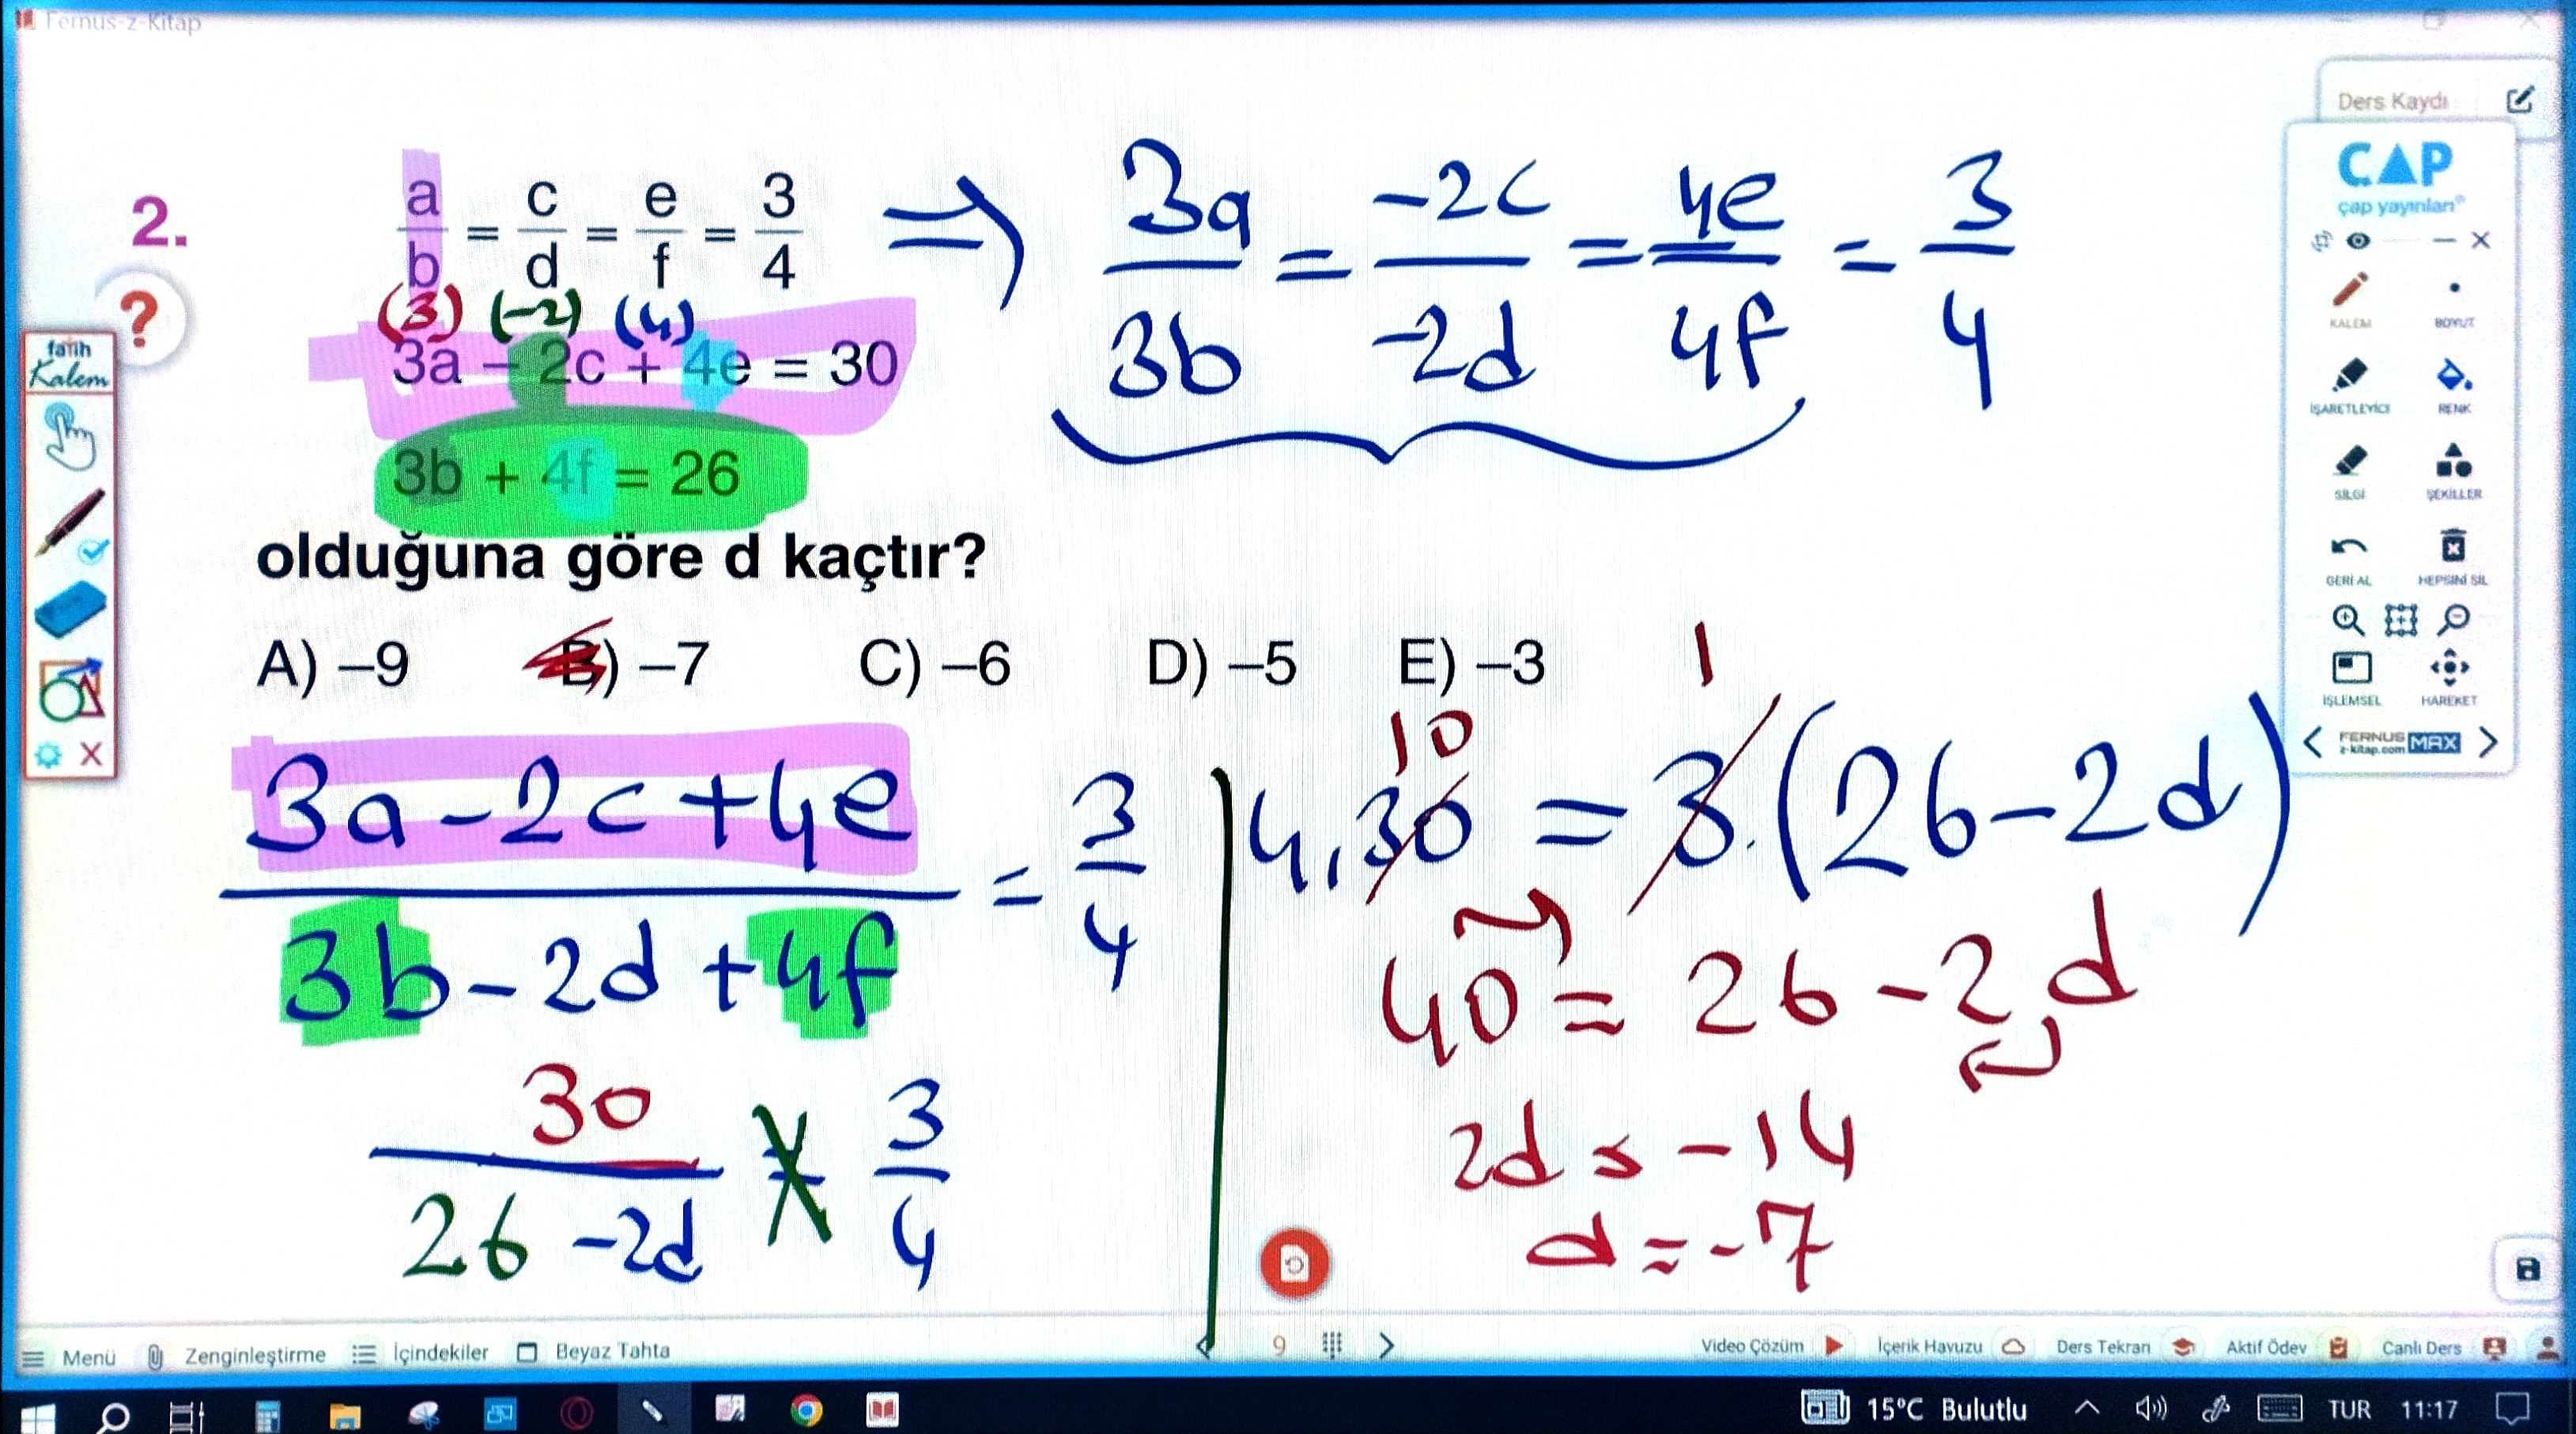 Fernus-z-Kitap
Ders Kaydı
ÇAP
çap yayınları®
KALEM BOYUT
İŞARETLEYİCİ RENK
SİLGİ ŞEKİLLER
GERİ AL HEPSİNİ SİL
İŞLEMSEL HAREKET
FERNUS
z-kitap.com MAX
fatih
Kalem
?
2. a/b = c/d = e/f = 3/4 ⇒ 3a/3b = -2c/-2d = 4e/4f = 3/4
(3) (-2) (4)
3a – 2c + 4e = 30
3b + 4f = 26
olduğuna göre d kaçtır?
A) –9 B) –7 C) –6 D) –5 E) –3
(3a-2c+4e)/(3b-2d+4f) = 3/4
30/(26-2d) = 3/4
10 1
4.30 = 3.(26-2d)
40 = 26-2d
2d = -14
d = -7
Menü Zenginleştirme İçindekiler Beyaz Tahta 9 Video Çözüm İçerik Havuzu Ders Tekran Aktif Ödev Canlı Ders
15°C Bulutlu TUR 11:17